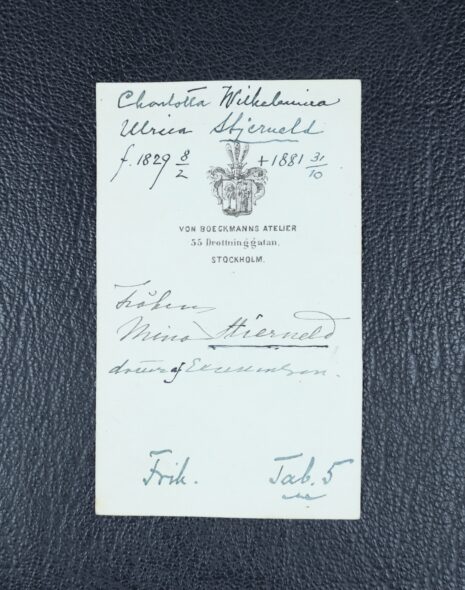 Charlotta Wilhelmina
Ulrica Stjerneld
f. 1829 8/2 + 1881 31/10
VON BOECKMANNS ATELIER
55 Drottninggatan,
STOCKHOLM.
Fröken
Mina Stierneld
af
Frih. Tab. 5